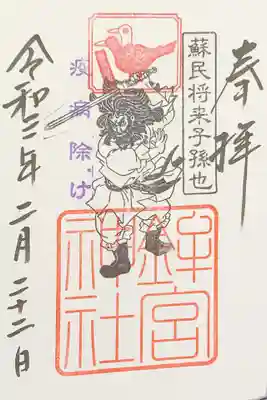 奉拝
蘇民将来子孫也
疫病除け
鉾宮
神社
令和三年 二月 二十二日